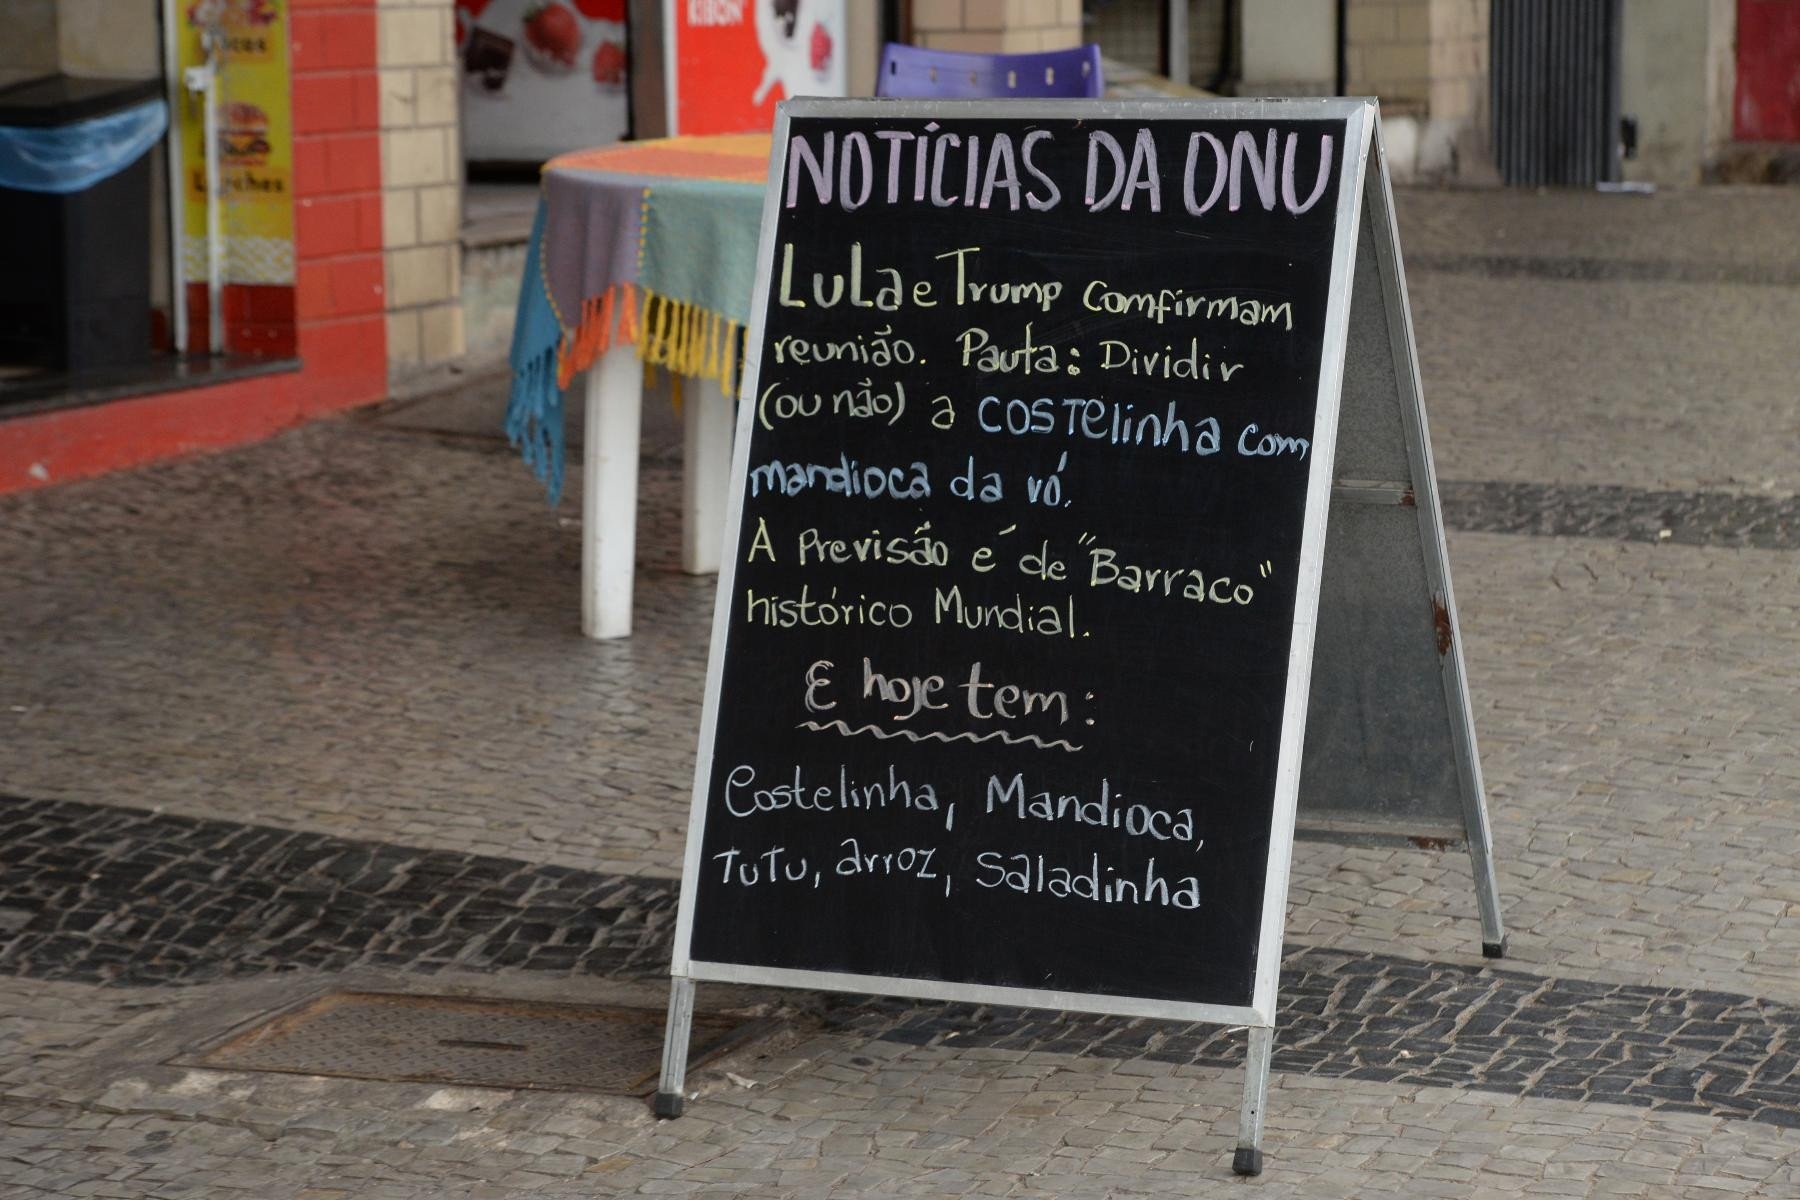 KIBON
Lanches
NOTÍCIAS DA ONU
LuLa e Trump Comfirmam
reunião. Pauta: Dividir
(ou não) a COSTElinha com
mandioca da vó.
A Previsão é de "Barraco"
histórico Mundial.
E hoje tem:
Costelinha, Mandioca,
TuTu, arroz, Saladinha